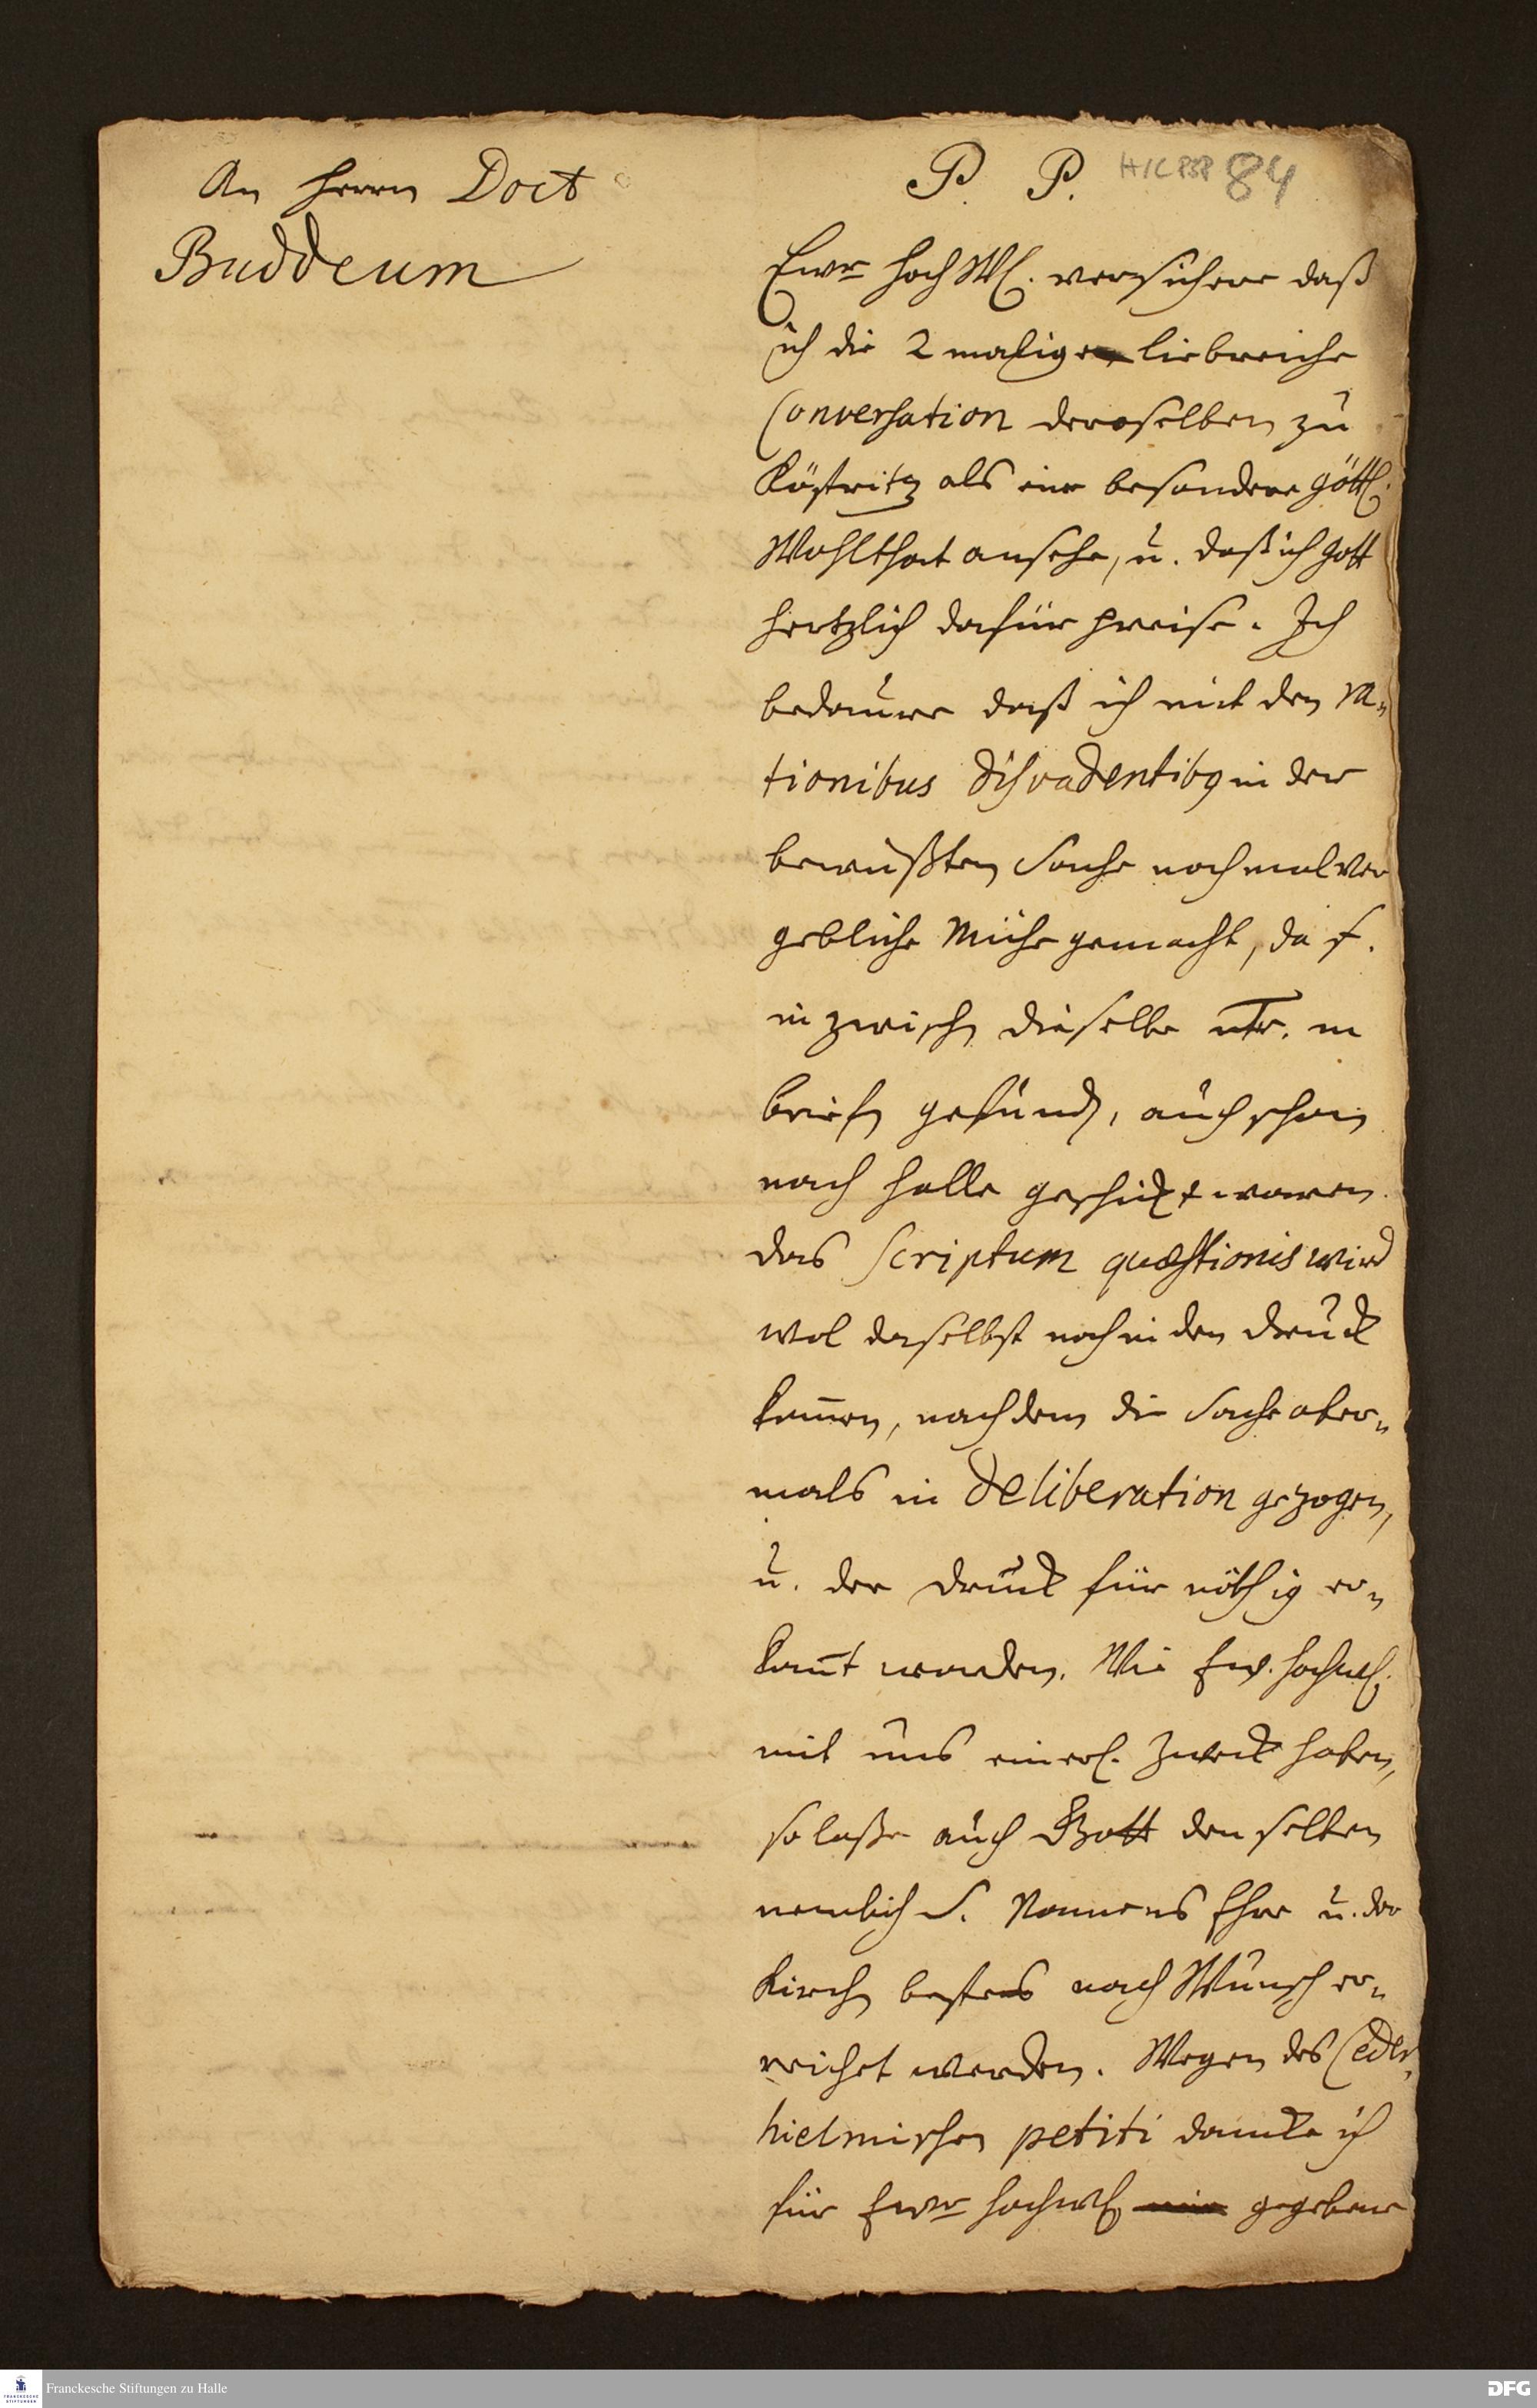 An Herrn Doct
Buddeum
P. P.
84
Ewr HochW. versichere daß
ich die 2 malige liebreiche
Conversation deroselben zu
Köstritz als eine besondere göttl.
Wohlthat ansehe, u. daß ich Gott
hertzlich dafür preise. Ich
bedaure daß ich mit den ra-
tionibus disvadentibg in der
bewußten Sache nochmal ver
gebliche Mühe gemacht, da s.
inzwischen dieselbe in
briefen gefunden, auch schon
nach Halle geschickt waren.
das Scriptum quæstionis wird
wol daselbst noch in den druck
kommen, nachdem die Sache aber-
mals in deliberation gezogen,
u. der druck für nöthig er-
kannt worden. Wie Ew. HochW.
mit uns einerl. Zweck haben,
so laße auch Gott denselben
nemlich S. Namens Ehre u. der
Kirchen bestes nach Wunsch er-
reichet werden. Wegen des Ceder-
hielmischen petiti dancke ich
für Ewr HochW. gegebene
Franckesche Stiftungen zu Halle
DFG